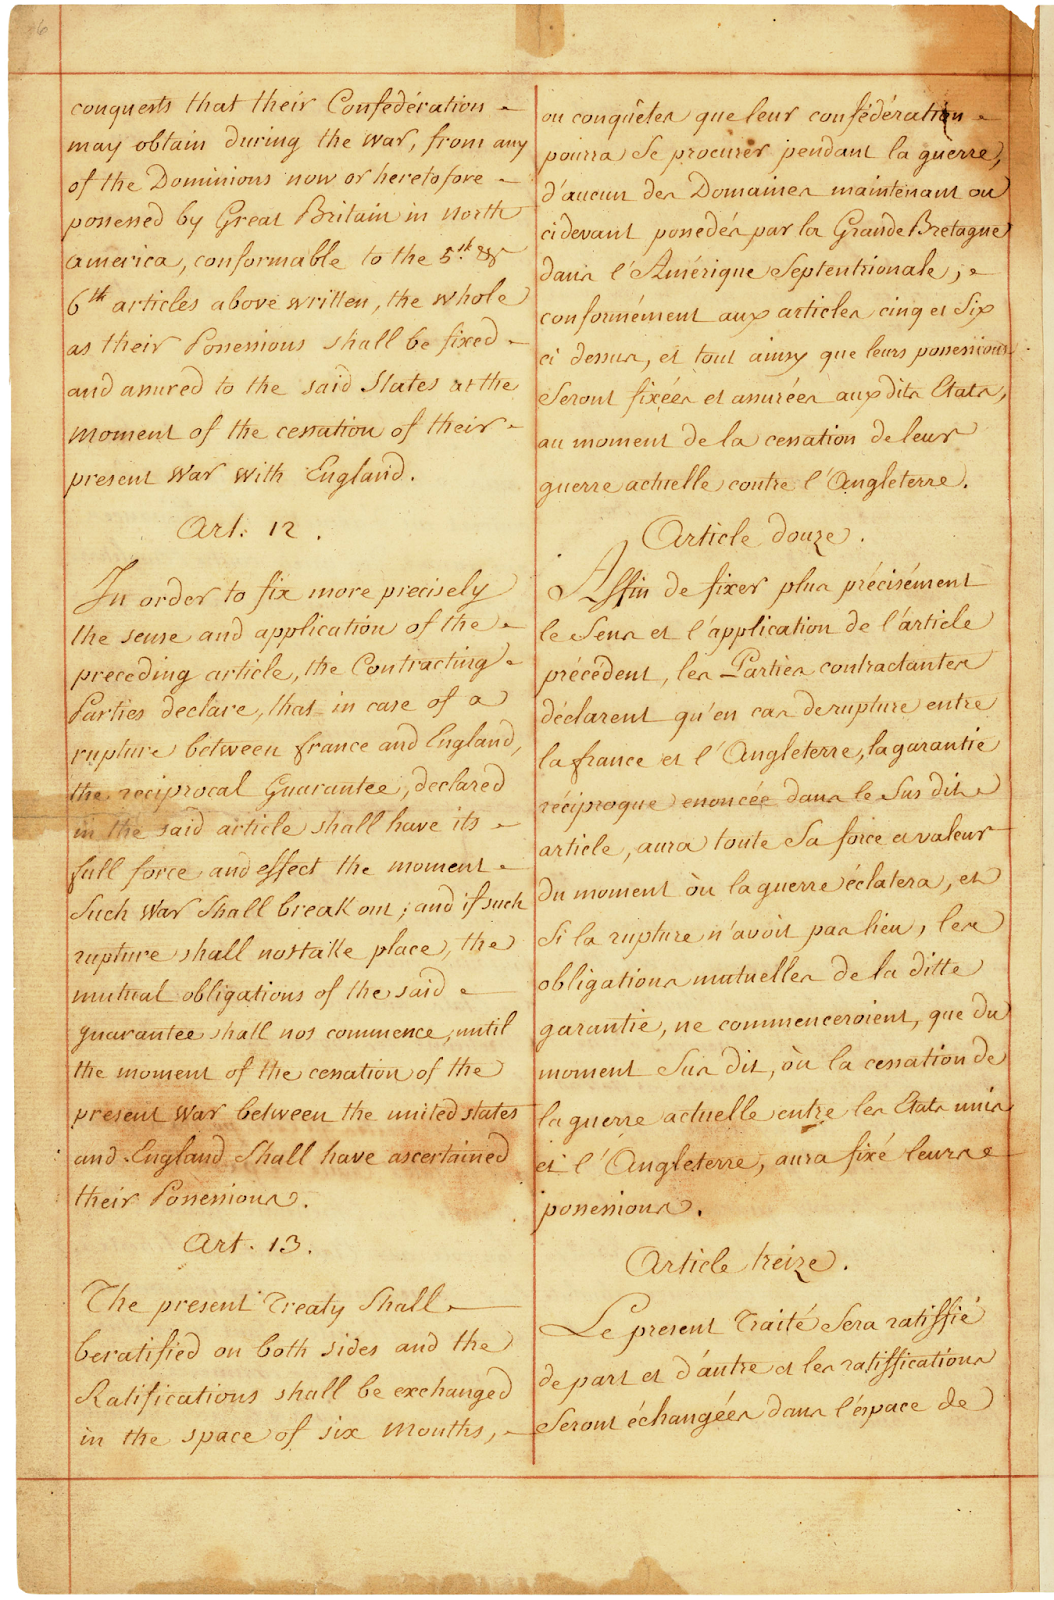 conquests that their Confédération
may obtain during the war, from any
of the Dominions now or heretofore
possessed by Great Britain in north
america, conformable to the 5th &
6th articles above written, the whole
as their Possessions shall be fixed
and assured to the said States at the
moment of the cessation of their
present war with England.
Art: 12.
In order to fix more precisely
the sense and application of the
preceding article, the Contracting
Parties declare, that in case of a
rupture between france and England,
the reciprocal Guarantee, declared
in the said article shall have its
full force and effect the moment
such War shall break out; and if such
rupture shall not take place, the
mutual obligations of the said
guarantee shall not commence, until
the moment of the cessation of the
present war between the united states
and England shall have ascertained
their Possessions.
Art. 13.
The present Treaty shall
be ratified on both sides and the
Ratifications shall be exchanged
in the space of six months,
ou conquêtes que leur confédération
pourra se procurer pendant la guerre,
d'aucun des Domaines maintenant ou
cidevant possedés par la Grande Bretagne
dans l'Amérique Septentrionale,
conformément aux articles cinq et Six
ci dessus, et tout ainsy que leurs possessions
Seront fixées et assurées aux dits Etats,
au moment de la cessation de leur
guerre actuelle contre l'Angleterre.
Article douze.
Affin de fixer plus précisément
le Sens et l'application de l'article
précédent, les Parties contractantes
déclarent qu'en cas de rupture entre
la france et l'Angleterre, la garantie
réciproque enoncée dans le Sus dit
article, aura toute Sa force et valeur
du moment où la guerre éclatera, et
Si la rupture n'avoit pas lieu, les
obligations mutuelles de la ditte
garantie, ne commenceroient, que du
moment Sus dit, où la cessation de
la guerre actuelle entre les Etats unis
et l'Angleterre, aura fixé leurs
possessions.
Article treize.
Le present Traité Sera ratiffié
de part et d'autre et les ratiffications
Seront échangées dans l'éspace de